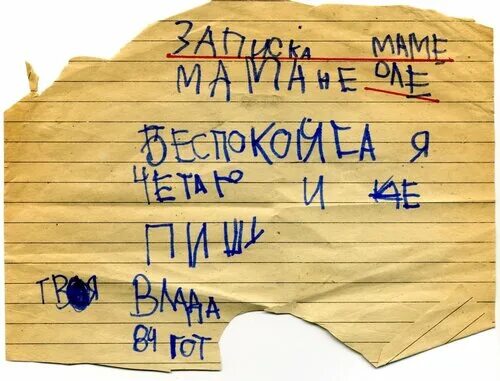 ЗАПИСКА МАМЕ
МАМА НЕ ОЛЕ
БЕСПОКОЙСА Я
ЧЕТАЮ И НЕ
ПИШУ
ТВОЯ ВЛАДА
84 ГОТ